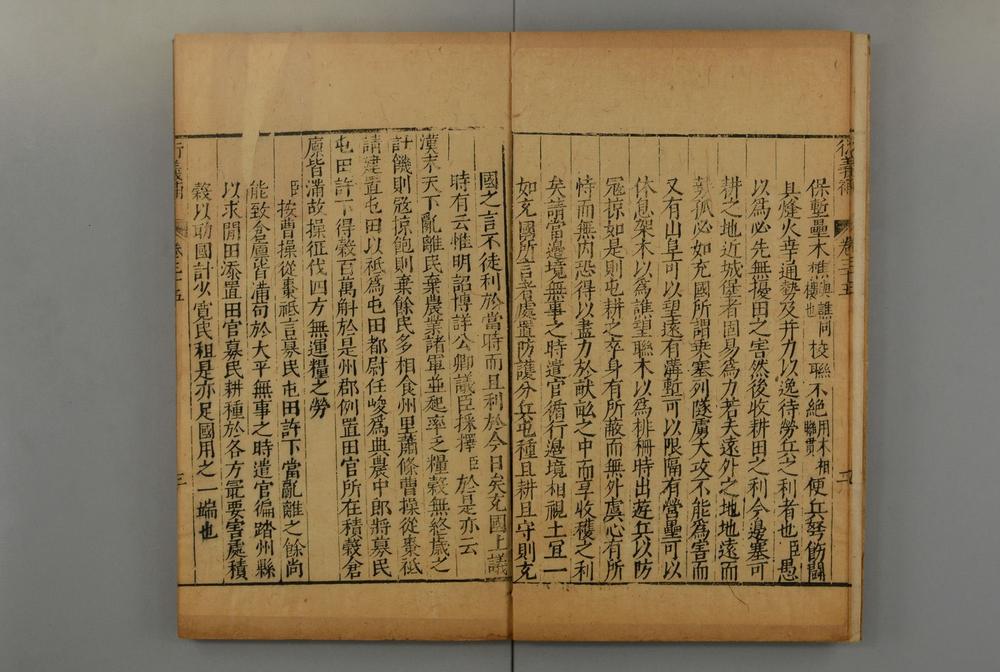 衍義補 卷三十五
保塹壘木樵與譙同樓也校聯不絕用木相聯貫便兵弩飭鬬
具烽火幸通勢及并力以逸待勞兵之利者也臣愚
以為必先無擾田之害然後收耕田之利今邊塞可
耕之地近城堡者固易為力若夫遠外之地地遠而
勢孤必如充國所謂乘塞列隧虜大攻不能為害而
又有山阜可以望遠有溝塹可以限隔有營壘可以
休息架木以為譙望聯木以為排柵時出遊兵以防
寇掠如是則屯耕之卒身有所蔽而無外虞心有所
恃而無內恐得以盡力於畎畝之中而享收穫之利
矣請當邊境無事之時遣官循行邊境相視土宜一
如充國所言者處置防護分兵屯種且耕且守則充
國之言不徒利於當時而且利於今日矣充國上議
時有云惟明詔博詳公卿議臣採擇臣於是亦云
漢末天下亂離民棄農業諸軍並起率乏糧穀無終歲之
計饑則寇掠飽則棄餘民多相食州里蕭條曹操從棗祗
請建置屯田以祗為屯田都尉任峻為典農中郎將募民
屯田許下得穀百萬斛於是州郡例置田官所在積穀倉
廩皆滿故操征伐四方無運糧之勞
臣按曹操從棗祗言募民屯田許下當亂離之餘尚
能致倉廩皆滿句於大平無事之時遣官徧踏州縣
以求閒田添置田官募民耕種於各方最要害處積
穀以助國計少寬民租是亦足國用之一端也
衍義補 卷三十五